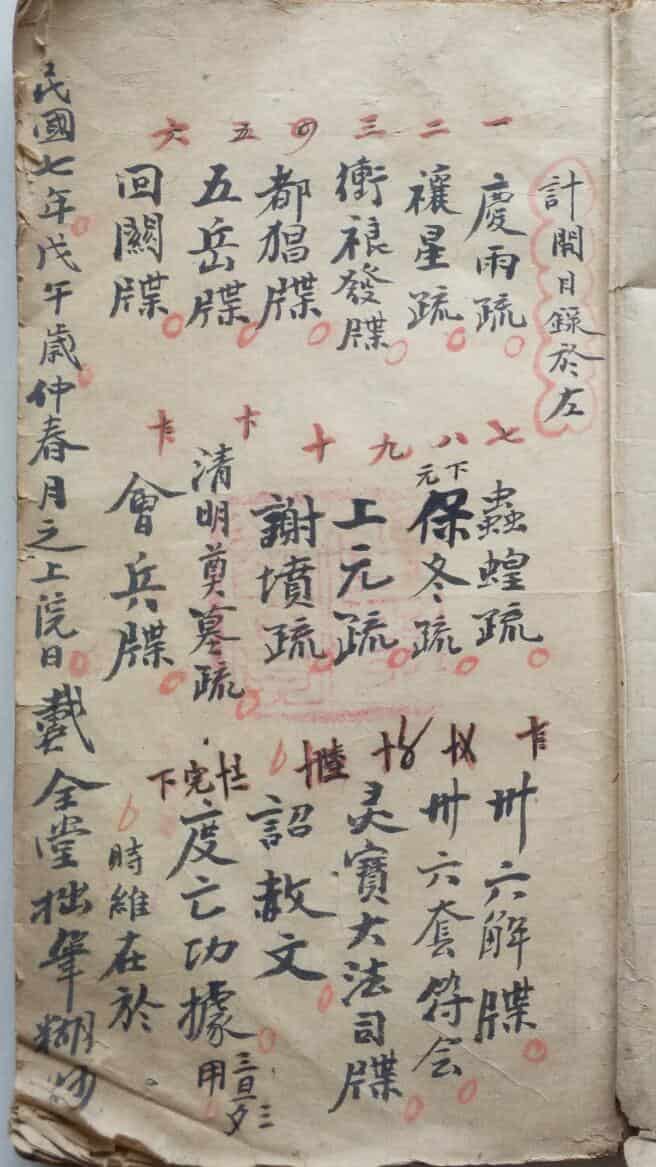 計開目錄於左
一 慶雨疏
二 禳星疏
三 衝禓發牒
四 都猖牒
五 五岳牒
六 回關牒
七 蟲蝗疏
八 下元保冬疏
九 上元疏
十 謝墳疏
清明奠墓疏
會兵牒
卅六解牒
卅六套符会
灵寶大法司牒
十陸 詔赦文
度亡功據
三旦夕三
用
完下
時維在於
民國七年戊午歲仲春月之上院日戴全堂拙筆糊抄